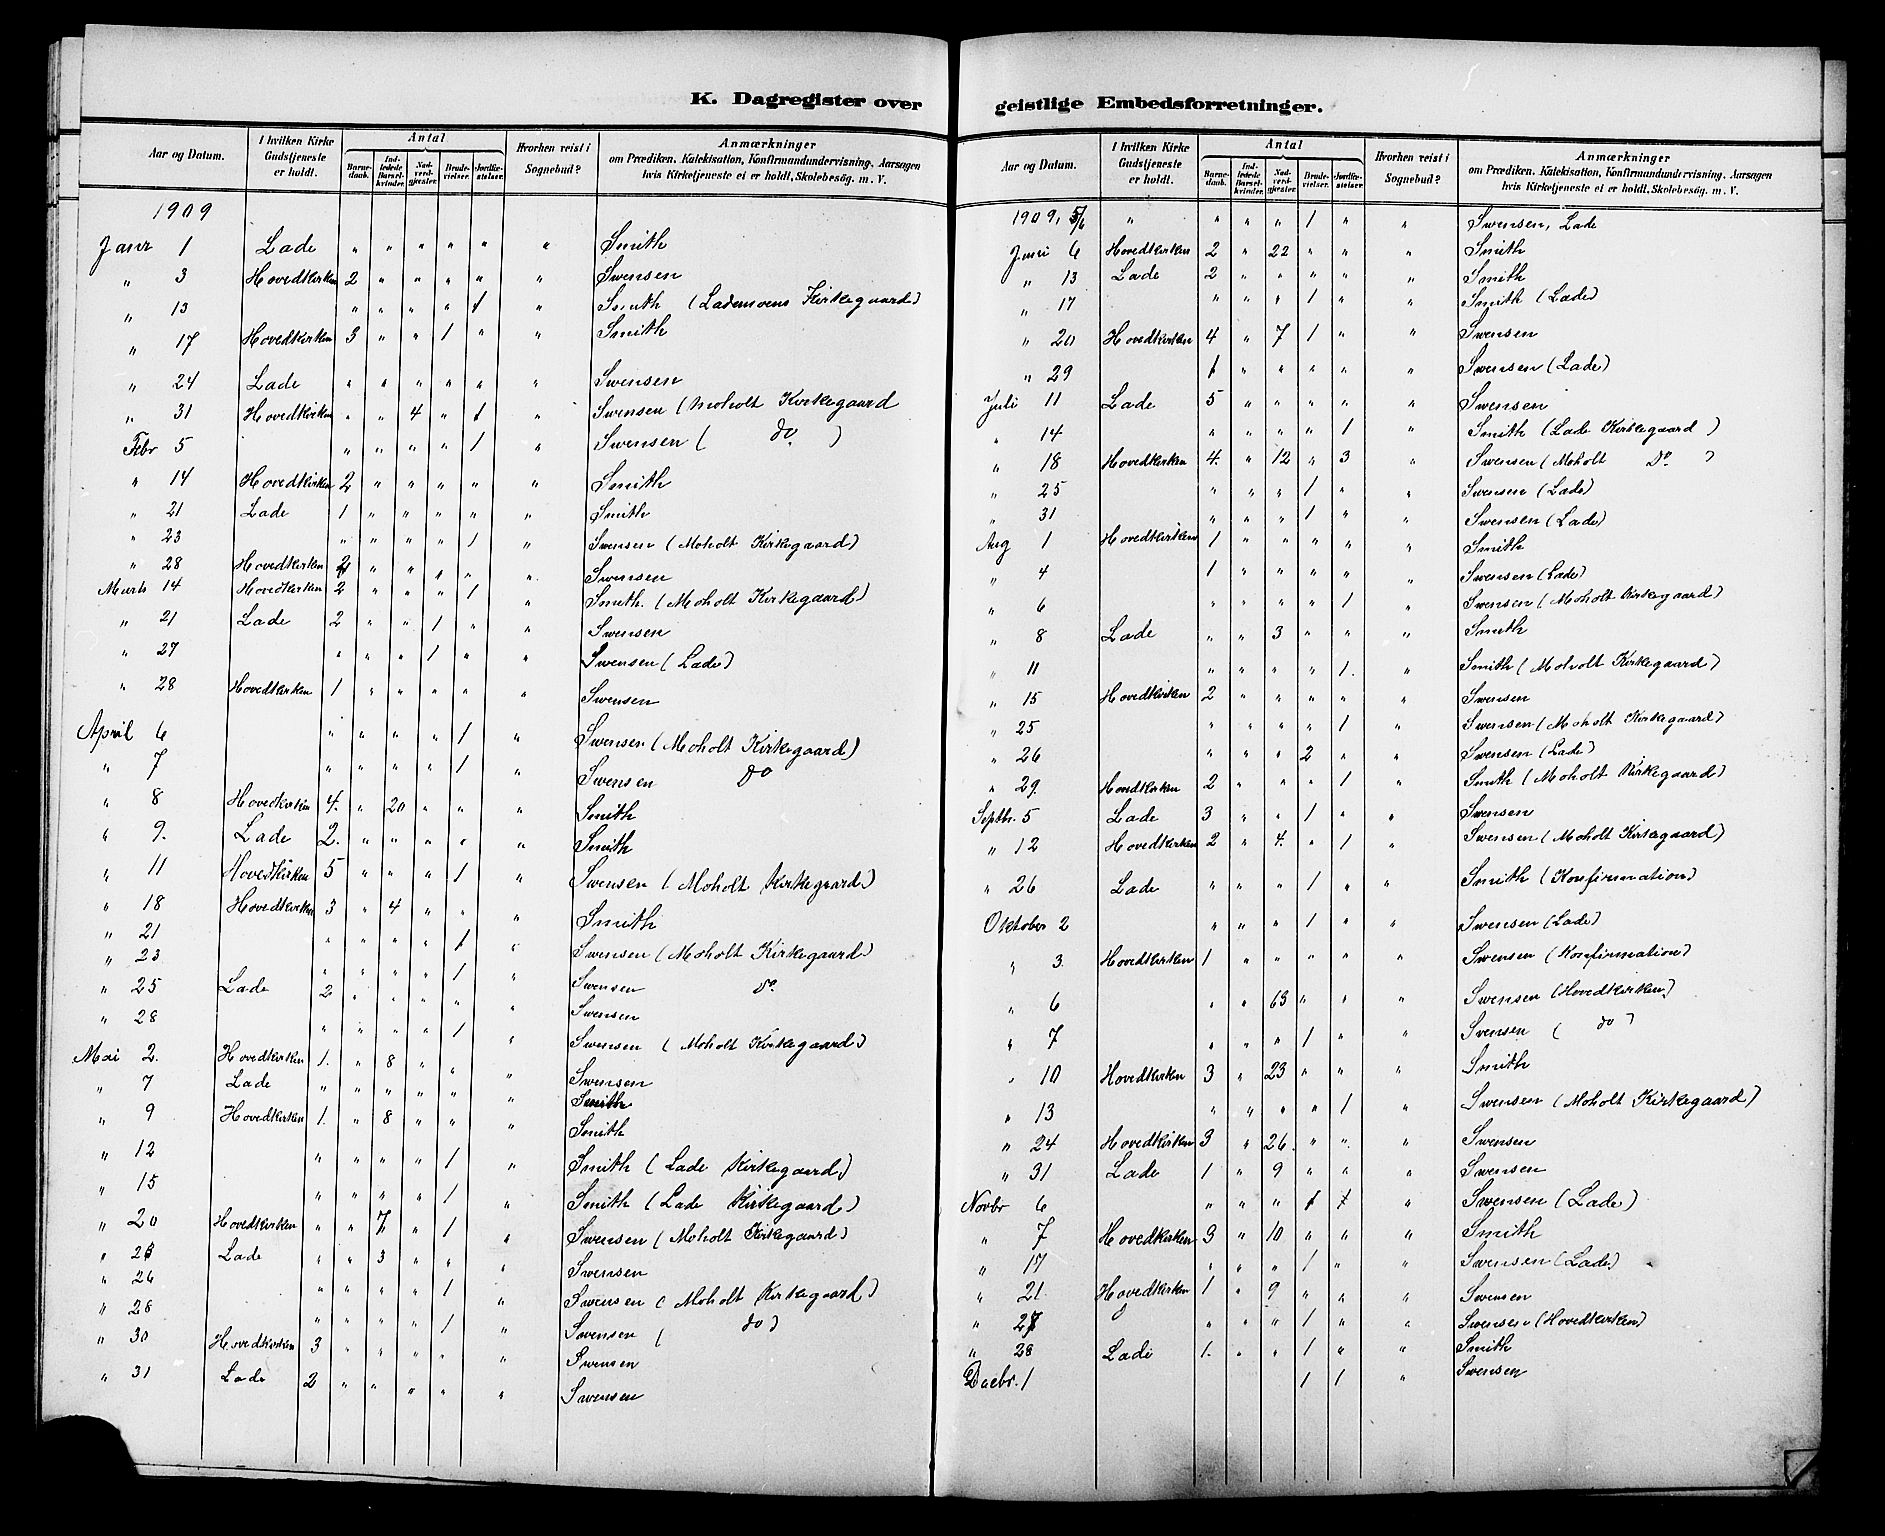 K. Dagregister over
Aar og Datum. I hvilken Kirke Gudstjeneste er holdt. Antal Barnedaab. Indledede Barselkvinder. Nadverdgjæster. Brudevielser. Jordfæstelser. Hvorhen reist i Sognebud? Anmærkninger om Prædiken, Katekisation, Konfirmandundervisning, Aarsagen hvis Kirketjeneste ei er holdt, Skolebesøg. m. V.
1909
Janr 1 Lade " " " " " " Smith
" 3 Hovedkirken 2 " " " " " Swensen
" 13 " " " " 1 " Smith (Lademoens Kirkegaard)
" 17 Hovedkirken 3 " " 1 " " Smith
" 24 Lade " " " " " " Swensen
" 31 Hovedkirken " " 4 " 1 " Swensen (Moholt Kirkegaard
Febr 5 " " " " 1 " Swensen ( do )
" 14 Hovedkirken 2 " " " " " Smith
" 21 Lade 1 " " " " " Smith
" 23 " " " " 1 " Swensen (Moholt Kirkegaard)
" 28 Hovedkirken 2 " " " " " Swensen
Marts 14 Hovedkirken 2 " " " 1 " Smith. (Moholt Kirkegaard)
" 21 Lade 2 " " 1 " " Swensen
" 27 " " " 1 " " Swensen (Lade)
" 28 Hovedkirken 1 " " " " " Swensen
April 6 " " " " 1 " Swensen (Moholt Kirkegaard)
" 7 " " " " 1 " Swensen do
" 8 Hovedkirken 4. " 20 " " " Smith
" 9. Lade 2. " " " " " Smith
" 11 Hovedkirken 5 " " " 1 " Swensen (Moholt Kirkegaard.)
" 18 Hovedkirken 3 " 4 " " " Smith
" 21 " " " " 1 " Swensen (Moholt Kirkegaard)
" 23 " " " " 1 " Swensen do.
" 25 Lade 2 " " " " " Swensen
" 28 " " " " 1 " Swensen (Moholt Kirkegaard)
Mai 2. Hovedkirken 1. " 8 " " " Swensen
" 7 Lade " " " " " " Smith
" 9 Hovedkirken 1. " 8 " " " Smith
" 12 " " " " 1 " Smith (Lade Kirkegaard)
" 15 " " " " 1 " Smith (Lade Kirkegaard)
" 20 Hovedkirken " " 7 " 1 " Swensen (Moholt Kirkegaard)
" 23 Lade " " 3 " " " Swensen
" 26 " " " " 1 " Swensen (Moholt Kirkegaard)
" 28 " " " " 1 " Swensen ( do )
" 30 Hovedkirken 3 " " " " " Swensen
" 31 Lade 2 " " " " " Swensen
geistlige Embedsforretninger.
Aar og Datum. I hvilken Kirke Gudstjeneste er holdt. Antal Barnedaab. Indledede Barselkvinder. Nadverdgjæster. Brudevielser. Jordfæstelser. Hvorhen reist i Sognebud? Anmærkninger om Prædiken, Katekisation, Konfirmandundervisning, Aarsagen hvis Kirketjeneste ei er holdt, Skolebesøg. m. V.
1909, 5/6 " " " " 1 " " Swensen, Lade
Juni 6 Hovedkirken 2 " 22 " " " Smith
" 13 Lade 2 " " " " " Smith
" 17 " " " 1 " " Smith (Lade)
" 20 Hovedkirken 4 " 7 1 " " Swensen
" 29 1 " " " " " Swensen (Lade)
Juli 11 Lade 5 " " " " " Swensen
" 14 " " " " 1 " Smith (Lade Kirkegaard )
" 18 Hovedkirken 4. " 12 " 3 " Swensen (Moholt Do. )
" 25 " " " 1 " " Swensen (Lade)
" 31 " " " 1 " " Swensen (Lade)
Aug 1 Hovedkirken 1 " " " " " Smith
" 4 1 " " " " " Swensen (Lade)
" 6 " " " " 1 " Swensen (Moholt Kirkegaard)
" 8 Lade " " 3 " " " Smith
" 11 " " " " 1. " Smith (Moholt Kirkegaard)
" 15 Hovedkirken 2 " " " " " Swensen
" 25 " " " " 1 " Swensen (Moholt Kirkegaard)
" 26 " " " 2 " " Swensen (Lade)
" 29. Hovedkirken 2 " " " 1 " Smith (Moholt Kirkegaard)
Septbr. 5 Lade 3 " " 1 " " Swensen
" 12 Hovedkirken 2 " 4. " 1 " Swensen (Moholt Kirkegaard)
" 26 Lade " " " 1 " " Smith (Konfirmation)
Oktober 2 " " " 1 " " Swensen (Lade)
" 3. Hovedkirken 1 " " " " " Swensen (Konfirmation)
" 6 " " 63 " " " Swensen (Hovedkirken)
" 7 " " " 1 " " Svensen ( do )
" 10 Hovedkirken 3 " 23 " " " Smith
" 13 " " " " 1 " Swensen (Moholt Kirkegaard)
" 24 Hovedkirken 3 " 26. " " " Swensen
" 31 Lade 1 " 9 " " " Swensen
Novbr 6 " " " 1 " Swensen (Lade)
" 7 Hovedkirken 3 " 10 " " " Smith
" 17 " " " 1 " " Swensen (Lade)
" 21 Hovedkirken 1 " 9 " " " Swensen
" 27 " " " 1 " " Swensen (Hovedkirken)
" 28 Lade 1. " " 1 " " Smith
Decbr. 1 1 1 " Swensen